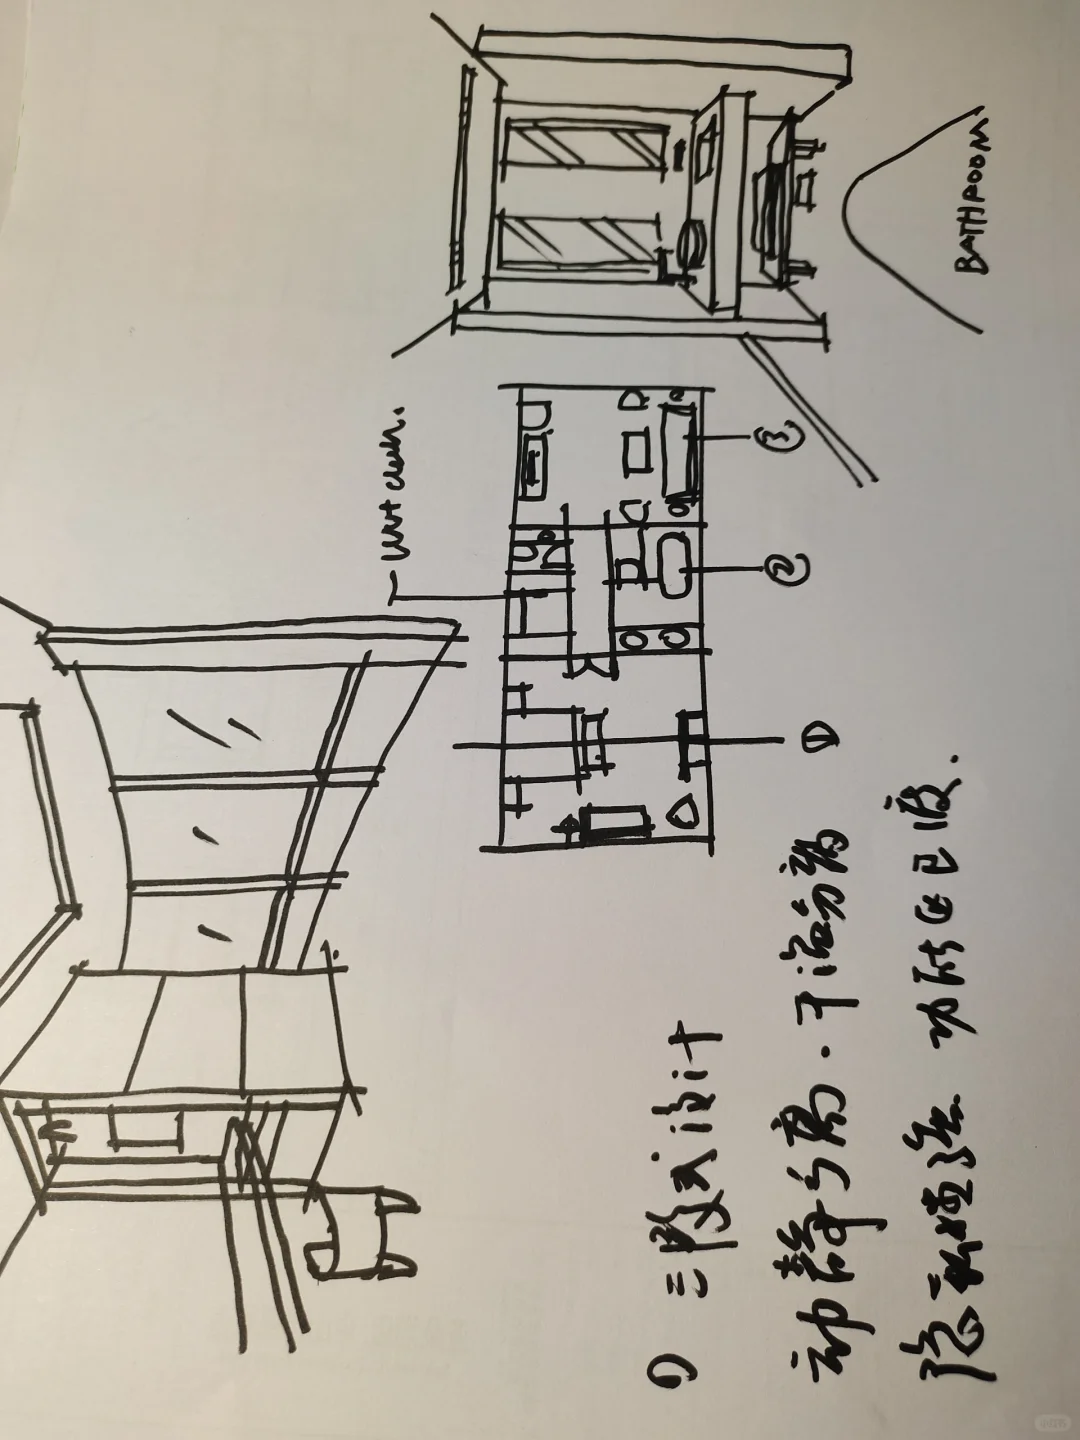 BATHROOM
Wet clean.
③
②
①
1) 三段式设计
动静分离.干湿分离
隐私性强 功能